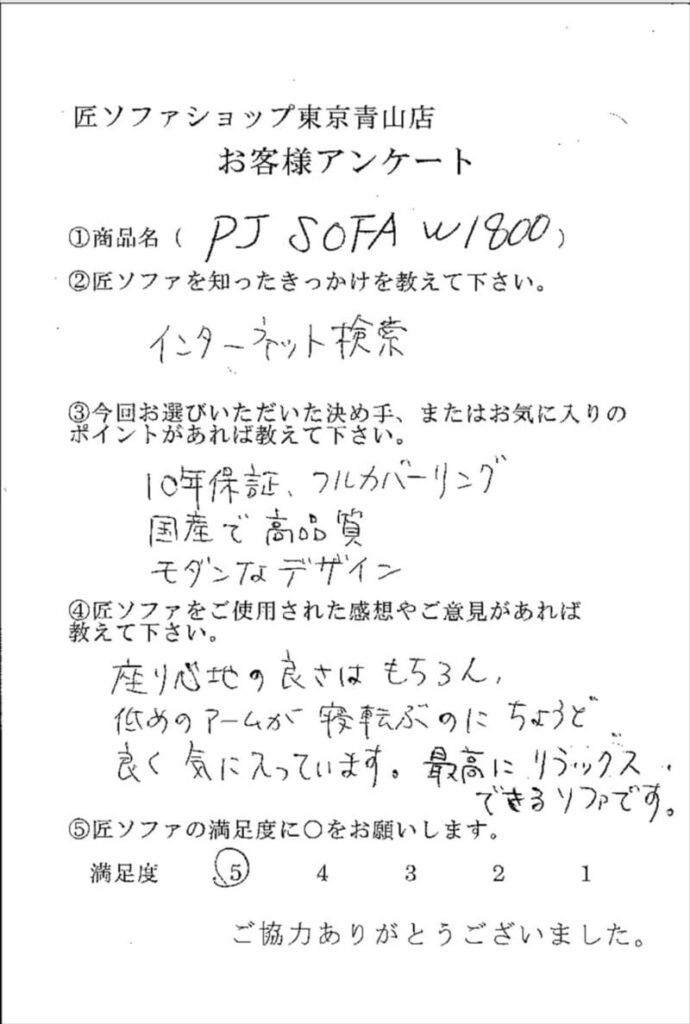 匠ソファショップ東京青山店
お客様アンケート
①商品名（ PJ SOFA W1800）
②匠ソファを知ったきっかけを教えて下さい。
インターネット検索
③今回お選びいただいた決め手、またはお気に入りの
ポイントがあれば教えて下さい。
10年保証、フルカバーリング
国産で高品質
モダンなデザイン
④匠ソファをご使用された感想やご意見があれば
教えて下さい。
座り心地の良さはもちろん、
低めのアームが寝転ぶのにちょうど
良く気に入っています。最高にリラックス
できるソファです。
⑤匠ソファの満足度に○をお願いします。
満足度 5 4 3 2 1
ご協力ありがとうございました。